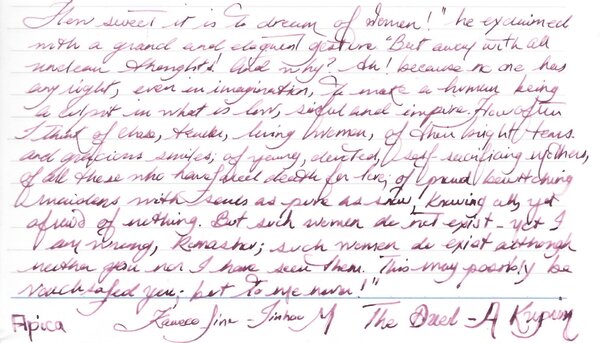 How sweet it is to dream of women!" he exclaimed
with a grand and eloquent gesture "But away with all
unclean thoughts! And why? Ah! because no one has
any right, even in imagination, to make a human being
a culprit in what is low, sinful and impure. How often
I think of chaste, tender, loving women, of their bright tears
and gracious smiles; of young, devoted, self-sacrificing mothers,
of all those who have faced death for love; of proud, bewitching
maidens with souls as pure as snow, knowing all, yet
afraid of nothing. But such women do not exist - yet I
am wrong, Romashov; such women do exist although
neither you nor I have seen them. This may possibly be
vouchsafed you; but to me never!"
Apica Kaweco M The Duel - A Kuprin